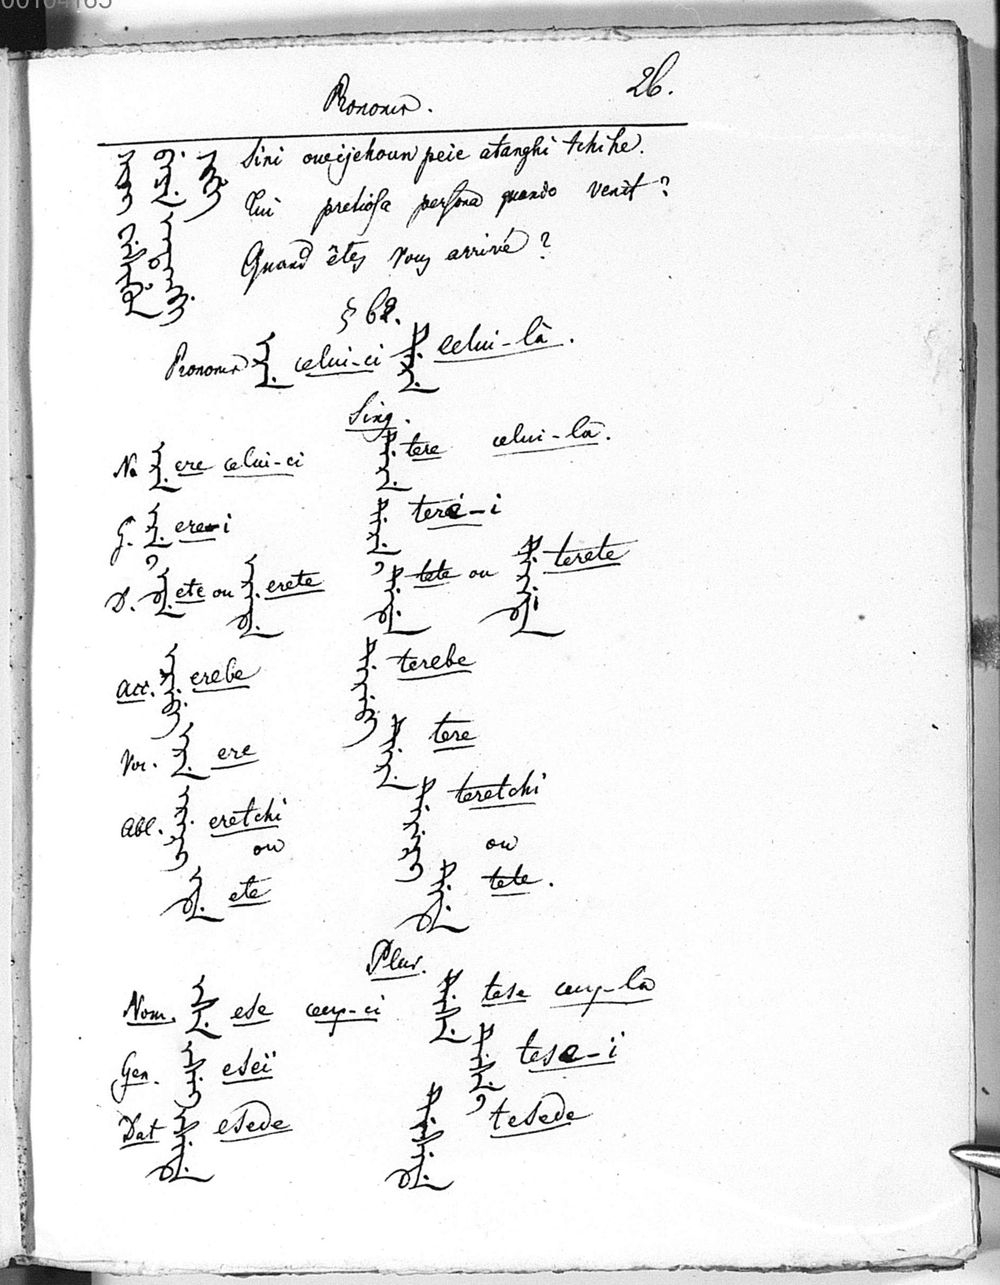 00104105
Pronoms.
26.
Sini oueijehoun peie atanghi tchihe.
Tui pretiosa persona quando venit ?
Quand êtes vous arrivé ?
§ 62.
Pronoms ᡝᡵᡝ celui-ci ᡨᡝᡵᡝ celui-là.
Sing.
N. ᡝᡵᡝ ere celui-ci ᡨᡝᡵᡝ tere celui-là.
G. ere-i tere-i
D. ete ou erete tete ou terete
Acc. erebe terebe
Voc. ᡝᡵᡝ ere ᡨᡝᡵᡝ tere
Abl. eretchi teretchi
ou ou
ete tete.
Plur.
Nom. ᡝᠰᡝ ese ceux-ci ᡨᡝᠰᡝ tese ceux-là
Gen. eseï tese-i
Dat esede tesede